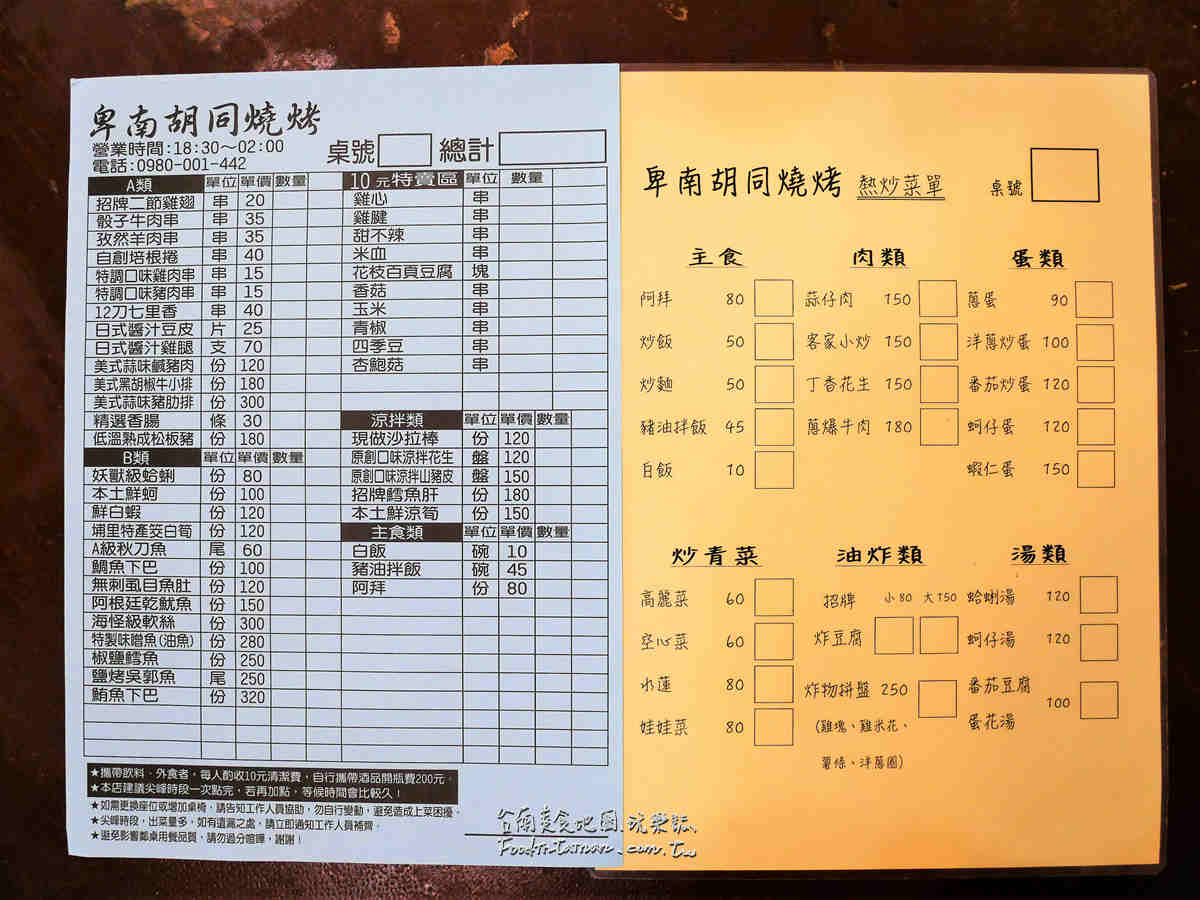 卑南胡同燒烤
營業時間:18:30～02:00
電話:0980-001-442
桌號 總計
A類 單位 單價 數量
招牌二節雞翅 串 20
骰子牛肉串 串 35
孜然羊肉串 串 35
自創培根捲 串 40
特調口味雞肉串 串 15
特調口味豬肉串 串 15
12刀七里香 串 40
日式醬汁豆皮 片 25
日式醬汁雞腿 支 70
美式蒜味鹹豬肉 份 120
美式黑胡椒牛小排 份 180
美式蒜味豬肋排 份 300
精選香腸 條 30
低溫熟成松板豬 份 180
B類 單位 單價 數量
妖獸級蛤蜊 份 80
本土鮮蚵 份 100
鮮白蝦 份 120
埔里特產筊白筍 份 120
A級秋刀魚 尾 60
鯛魚下巴 份 100
無刺虱目魚肚 份 120
阿根廷乾魷魚 份 150
海怪級軟絲 份 300
特製味噌魚(油魚) 份 280
椒鹽鱈魚 份 250
鹽烤吳郭魚 尾 250
鮪魚下巴 份 320
10元特賣區 單位 數量
雞心 串
雞腱 串
甜不辣 串
米血 串
花枝百頁豆腐 塊
香菇 串
玉米 串
青椒 串
四季豆 串
杏鮑菇 串
涼拌類 單位 單價 數量
現做沙拉棒 份 120
原創口味涼拌花生 盤 120
原創口味涼拌山豬皮 盤 150
招牌鱈魚肝 份 180
本土鮮涼筍 份 150
主食類 單位 單價 數量
白飯 碗 10
豬油拌飯 碗 45
阿拜 份 80
★攜帶飲料、外食者，每人酌收10元清潔費，自行攜帶酒品開瓶費200元。
★本店建議尖峰時段一次點完，若再加點，等候時間會比較久！
★如需更換座位或增加桌椅，請告知工作人員協助，勿自行變動，避免造成上菜困擾。
★尖峰時段，出菜量多，如有遺漏之處，請立即通知工作人員補齊。
★避免影響鄰桌用餐品質，請勿過分喧嘩，謝謝！
卑南胡同燒烤 熱炒菜單 桌號
主食
阿拜 80
炒飯 50
炒麵 50
豬油拌飯 45
白飯 10
肉類
蒜仔肉 150
客家小炒 150
丁香花生 150
蔥爆牛肉 180
蛋類
蔥蛋 90
洋蔥炒蛋 100
番茄炒蛋 120
蚵仔蛋 120
蝦仁蛋 150
炒青菜
高麗菜 60
空心菜 60
水蓮 80
娃娃菜 80
油炸類
招牌 小80 大150
炸豆腐
炸物拼盤 250
(雞塊、雞米花、
薯條、洋蔥圈)
湯類
蛤蜊湯 120
蚵仔湯 120
番茄豆腐
蛋花湯 100
台南美食地圖.玩樂誌
Foodintainan.com.tw